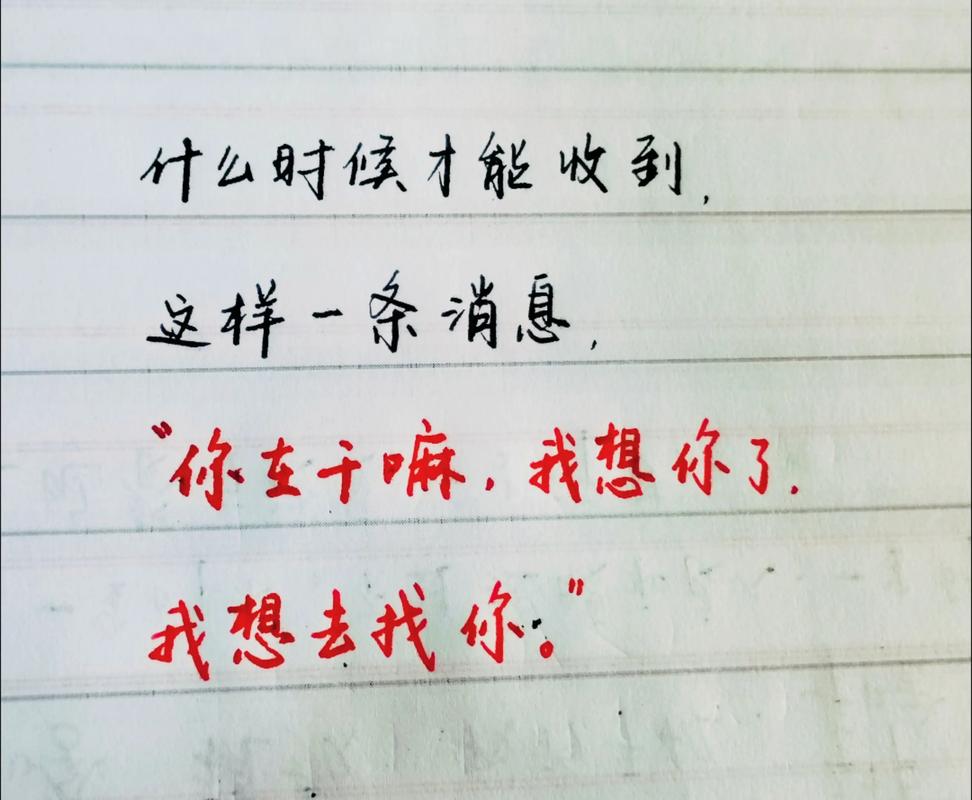 什么时候才能收到,
这样一条消息,
"你在干嘛,我想你了.
我想去找你。"